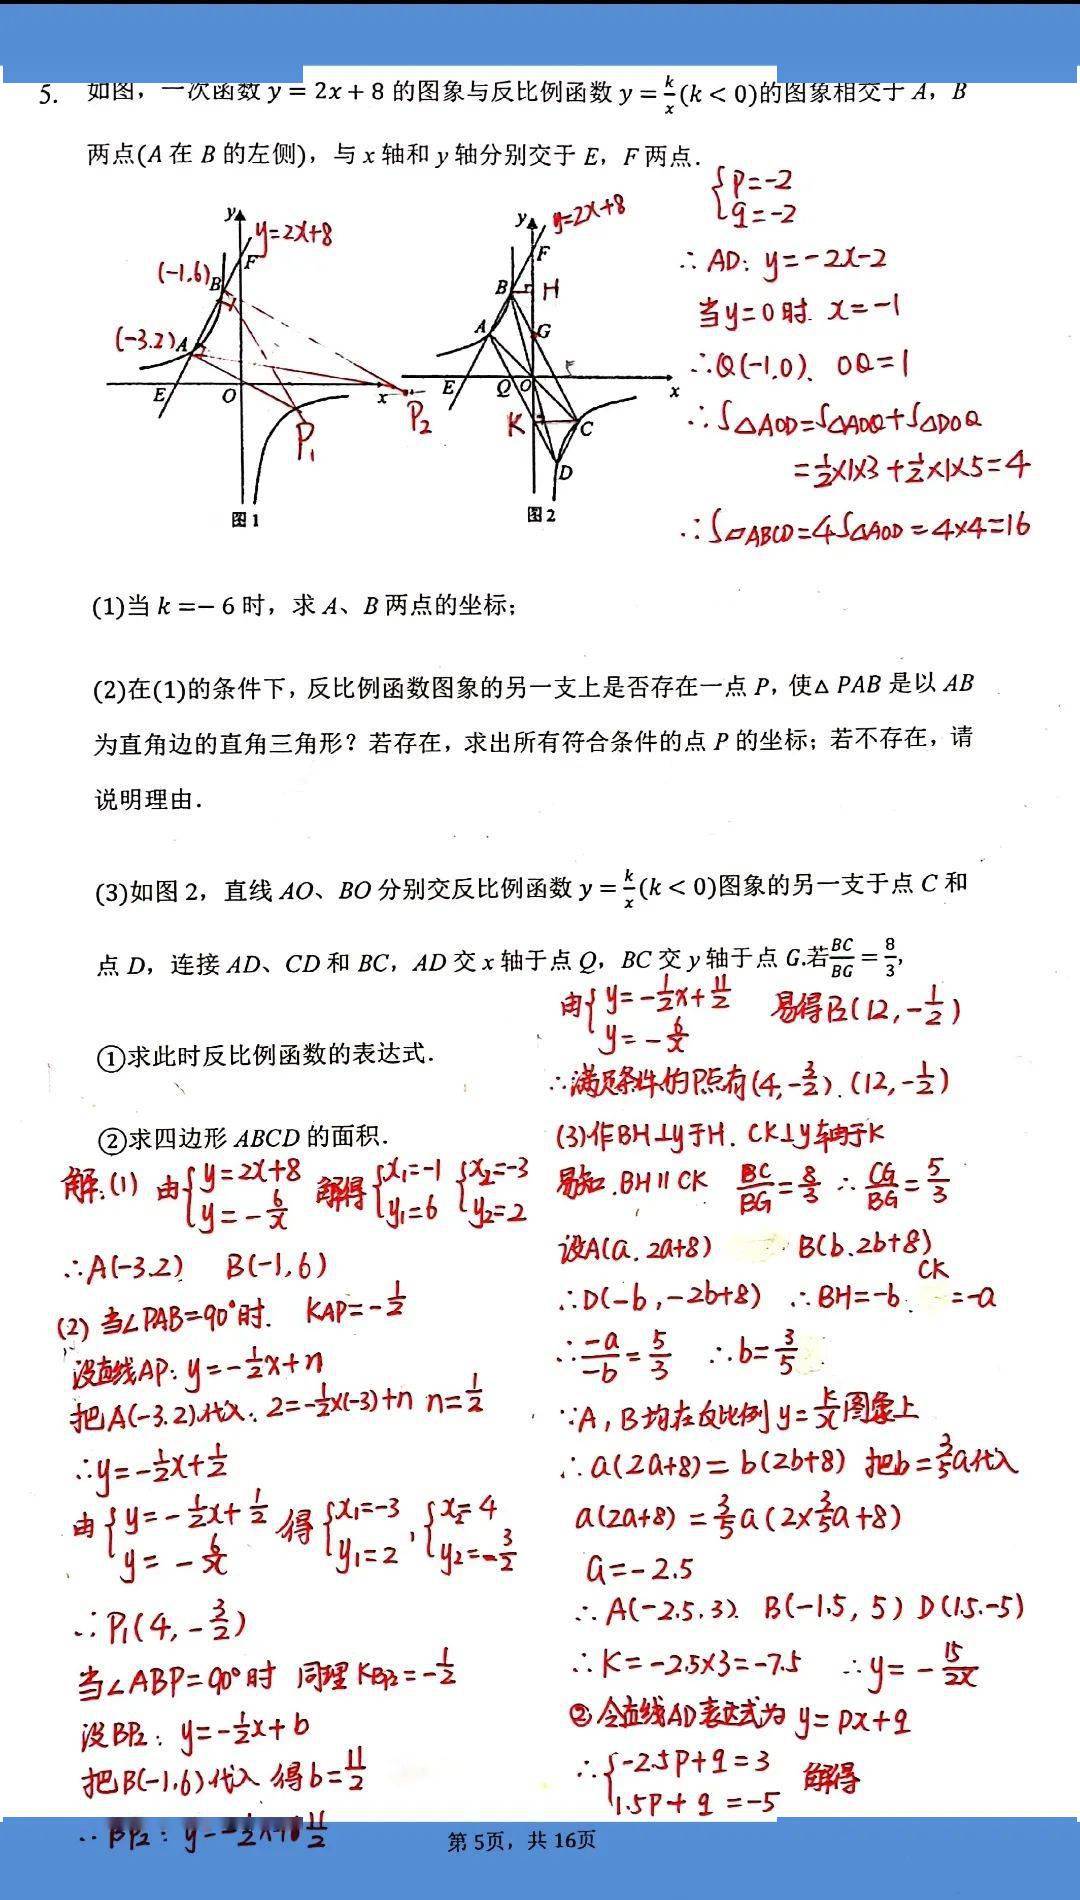 5. 如图，一次函数 y = 2x + 8 的图象与反比例函数 y = k/x (k < 0)的图象相交于 A，B
两点(A 在 B 的左侧)，与 x 轴和 y 轴分别交于 E，F 两点.
{p=-2
q=-2
∴ AD: y=-2x-2
当y=0时. x=-1
∴Q(-1,0). OQ=1
∴S△AOD=S△AOQ+S△DOQ
=1/2×1×3+1/2×1×5=4
∴S▱ABCD=4S△AOD=4×4=16
y
y=2x+8
F
(-1.6)
B
(-3.2)
A
E
O
x
P1
P2
图1
y
y=2x+8
F
B
H
A
G
E
Q
O
x
K
C
D
图2
(1)当 k =− 6 时，求 A、B 两点的坐标；
(2)在(1)的条件下，反比例函数图象的另一支上是否存在一点 P，使△ PAB 是以 AB
为直角边的直角三角形？若存在，求出所有符合条件的点 P 的坐标；若不存在，请
说明理由.
(3)如图 2，直线 AO、BO 分别交反比例函数 y = k/x (k < 0)图象的另一支于点 C 和
点 D，连接 AD、CD 和 BC，AD 交 x 轴于点 Q，BC 交 y 轴于点 G.若BC/BG = 8/3，
①求此时反比例函数的表达式.
②求四边形 ABCD 的面积.
解:(1) 由{y=2x+8
y=-6/x
解得{x1=-1
y1=6
{x2=-3
y2=2
∴A(-3.2) B(-1,6)
(2) 当∠PAB=90°时. KAP=-1/2
设直线AP: y=-1/2x+n
把A(-3.2)代入. 2=-1/2×(-3)+n n=1/2
∴y=-1/2x+1/2
由{y=-1/2x+1/2
y=-6/x
得{x1=-3
y1=2
,{x2=4
y2=-3/2
∴P1(4,-3/2)
当∠ABP=90°时 同理KBP2=-1/2
设BP2: y=-1/2x+b
把B(-1,6)代入 得b=11/2
∴BP2: y=-1/2x+11/2
由{y=-1/2x+11/2
y=-6/x
易得P2(12,-1/2)
∴满足条件的P点有(4,-3/2).(12,-1/2)
(3)作BH⊥y于H. CK⊥y轴于K
易知.BH∥CK BC/BG=8/3 ∴CG/BG=5/3
设A(a.2a+8) B(b.2b+8)
∴D(-b,-2b+8) ∴BH=-b. CK=-a
∴-a/-b=5/3 ∴b=3/5
∵A,B均在反比例y=k/x图象上
∴a(2a+8)=b(2b+8) 把b=3/5a代入
a(2a+8)=3/5a(2×3/5a+8)
a=-2.5
∴A(-2.5.3) B(-1.5,5) D(1.5.-5)
∴K=-2.5×3=-7.5 ∴y=-15/2x
②令直线AD表达式为 y=px+q
∴{-2.5p+q=3
1.5p+q=-5
解得
第 5页，共 16页